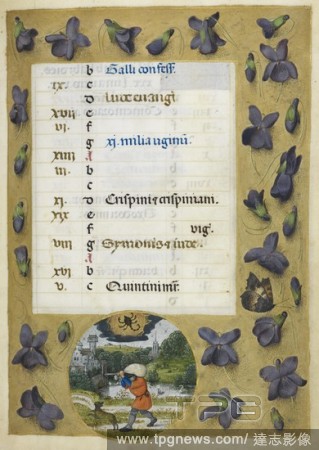 b Galli confess.
ix. c
d Luce euangł
xvii e
vi. f
g xi. milia uginū
xiiii A
iii. b
c
xi. d Crispini & crispiniani.
xix e
f vig.
viii g Symonis & iude.
A
xvi b
v. c Quintini mr.
TPG
www.tpgnews.com/ 達志影像